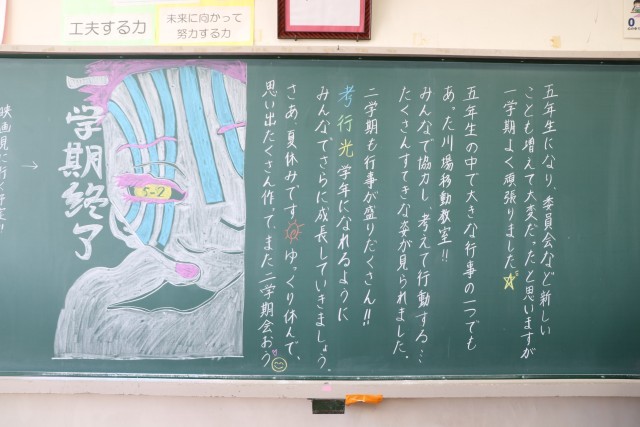 工夫する力
未来に向かって
努力する力
五年生になり、委員会など新しい
ことも増えて大変だったと思いますが
一学期よく頑張りました
五年生の中で大きな行事の一つでも
あった川場移動教室!!
みんなで協力し、考えて行動する…
たくさんすてきな姿が見られました。
二学期も行事が盛りだくさん!!
考行光 学年になれるように
みんなでさらに成長していきましょう。
さあ、夏休みです ゆっくり休んで、
思い出たくさん作って、また二学期会おう
一学期終了
5-2
映画観に行く予定!!
→